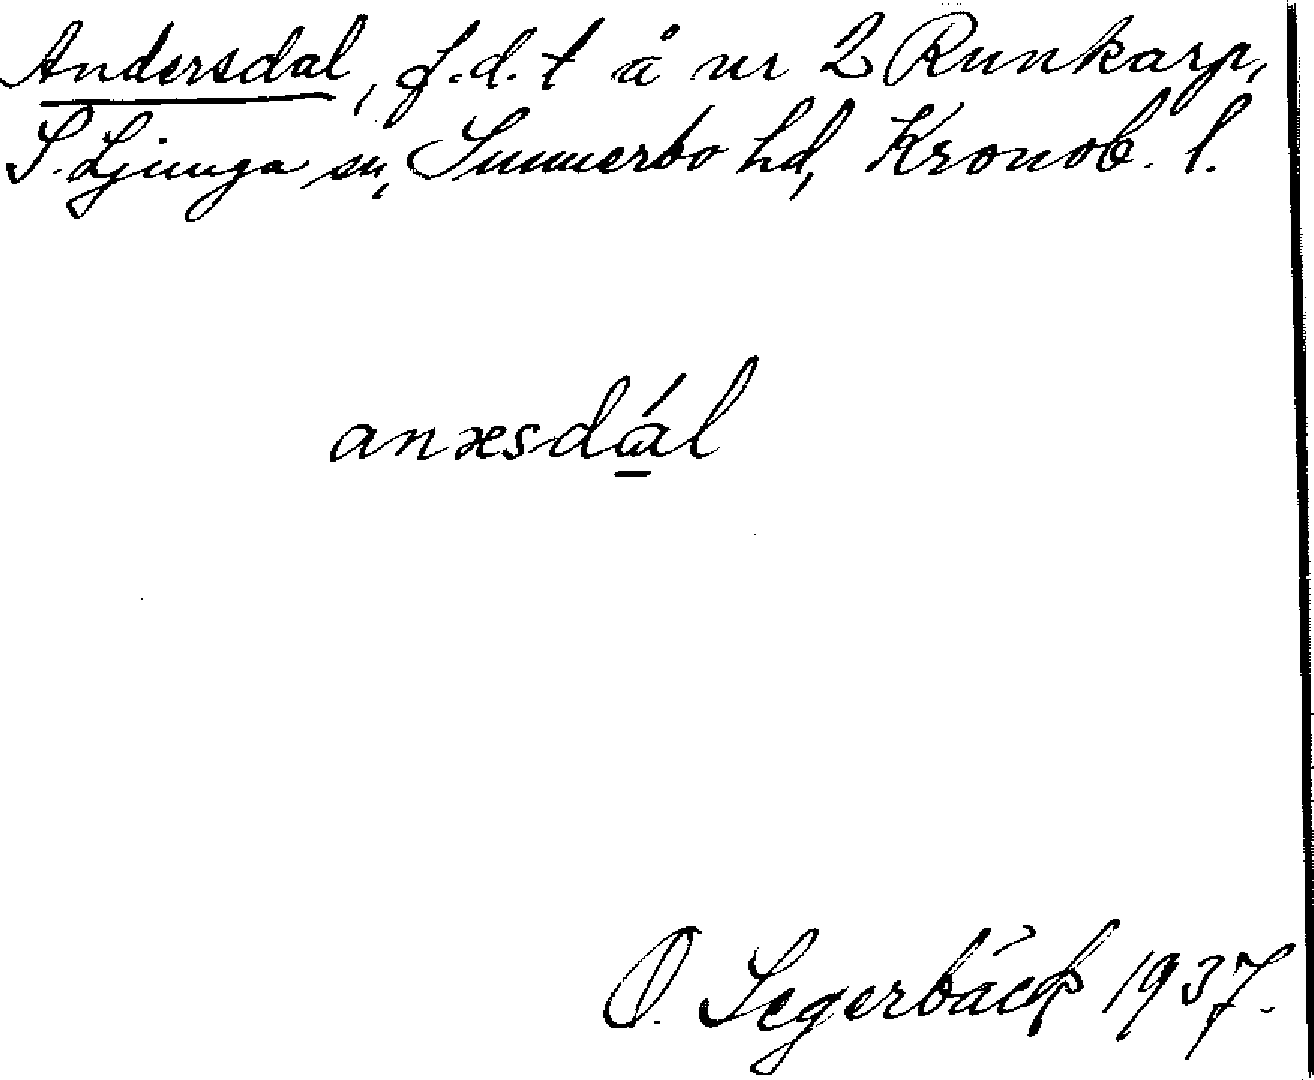 Andersdal, f.d. t å nr 2 Runkarp,
S. Ljunga sn, Sunnerbo hd, Kronob. l.
anæsdál
O. Segerbäck 1937.